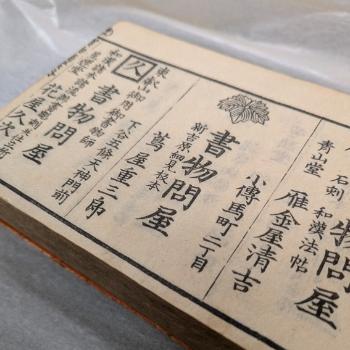 物問屋
石刻 和漢法帖
青山堂 雁金屋清吉
小傳馬町二丁目
書物問屋
新吉原細見板本
蔦屋重三郎
東叡山御用御書物師
下谷五條天神門前
久 書物問屋
和漢
花屋久次